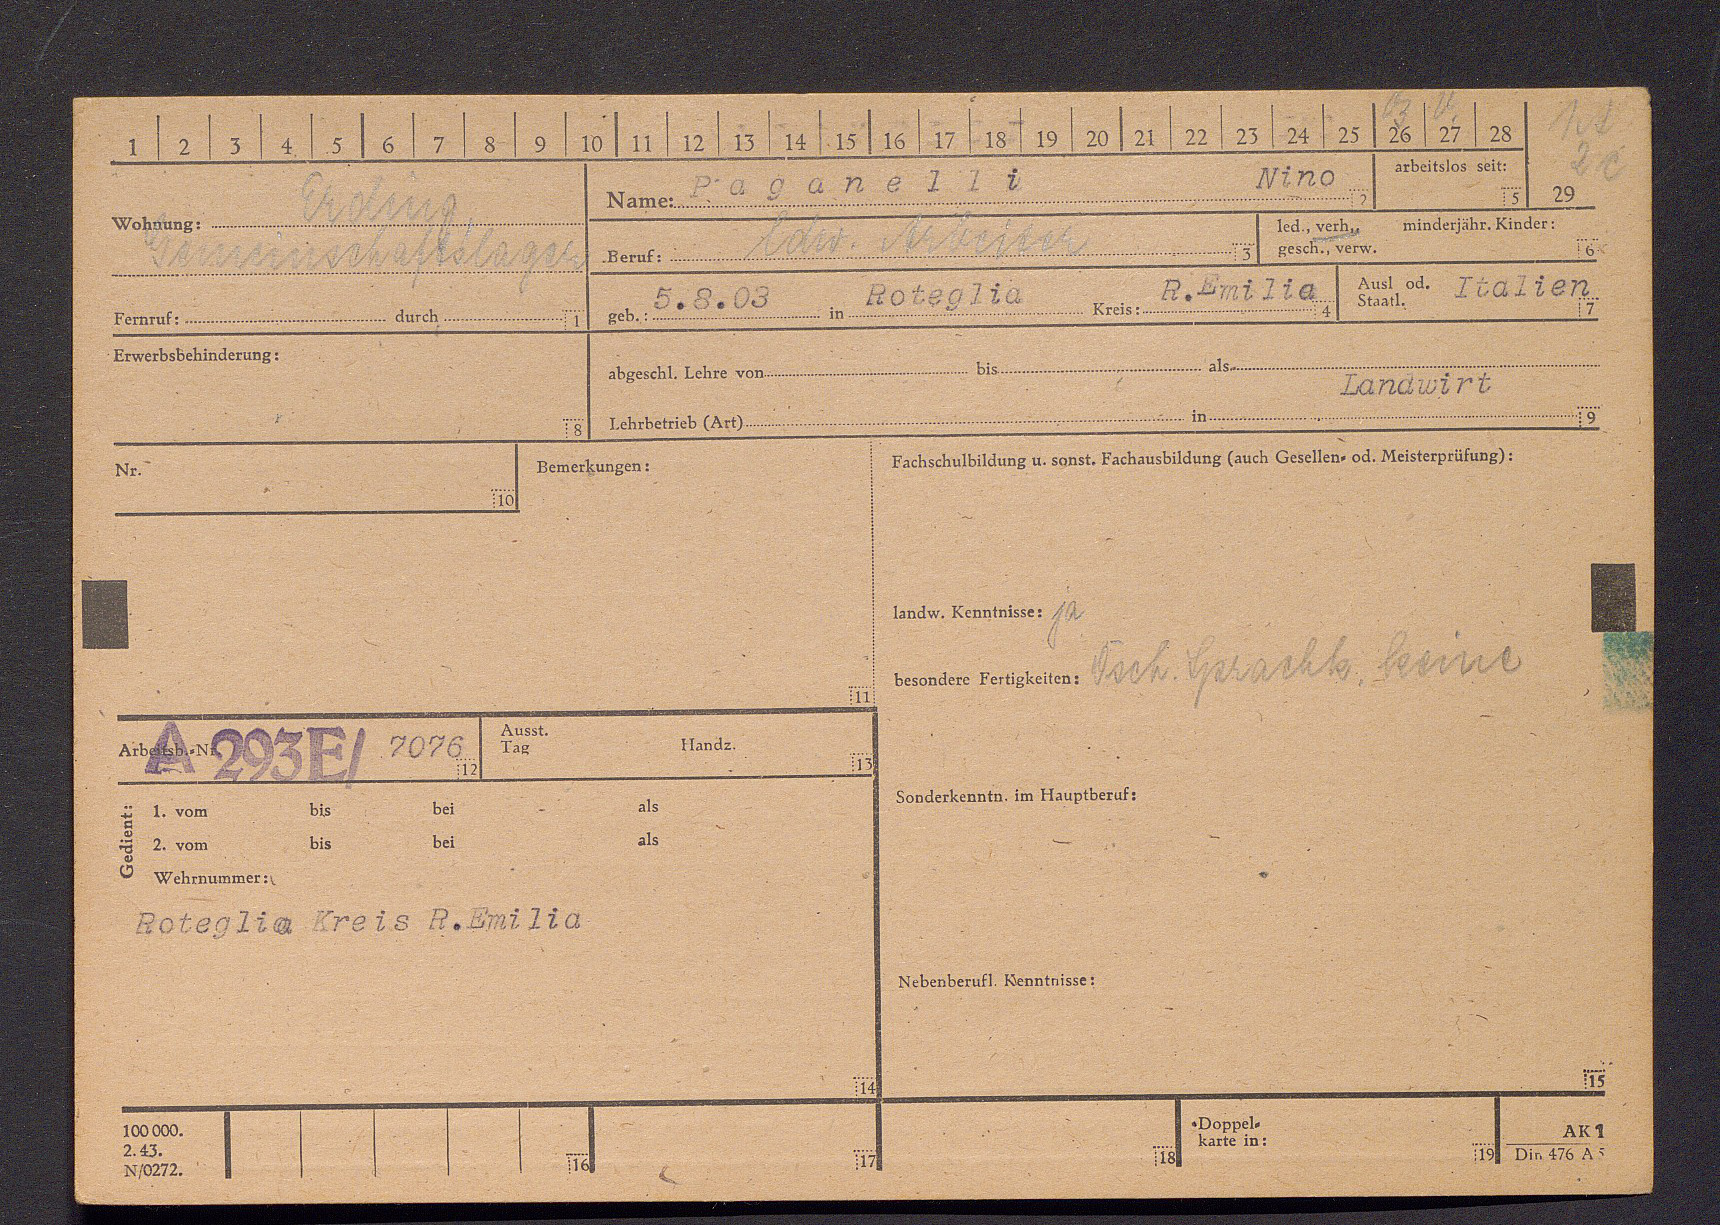 1 2 3 4 5 6 7 8 9 10 11 12 13 14 15 16 17 18 19 20 21 22 23 24 25 26 27 28 29
Wohnung: Erding,
Gemeinschaftslager
Fernruf: durch 1
Name: Paganelli Nino 2
arbeitslos seit: 5
Beruf: ldw. Arbeiter 3
led., verh., minderjähr. Kinder:
gesch., verw. 6
geb.: 5.8.03 in Roteglia Kreis: R.Emilia 4
Ausl od. Italien
Staatl. 7
Erwerbsbehinderung:
8
abgeschl. Lehre von bis als
Landwirt
Lehrbetrieb (Art) in 9
Nr.
10
Bemerkungen:
11
Fachschulbildung u. sonst. Fachausbildung (auch Gesellen- od. Meisterprüfung):
landw. Kenntnisse: ja
besondere Fertigkeiten: Dtsch. Sprachk. keine
Arbeitsb.-Nr. A 293E/ 7076 12
Ausst.
Tag Handz. 13
Gedient:
1. vom bis bei als
2. vom bis bei als
Wehrnummer:
Roteglia Kreis R.Emilia
14
Sonderkenntn. im Hauptberuf:
Nebenberufl. Kenntnisse:
15
100 000.
2. 43.
N/0272.
16
17
18
Doppel-
karte in:
19
AK 1
Din 476 A 5